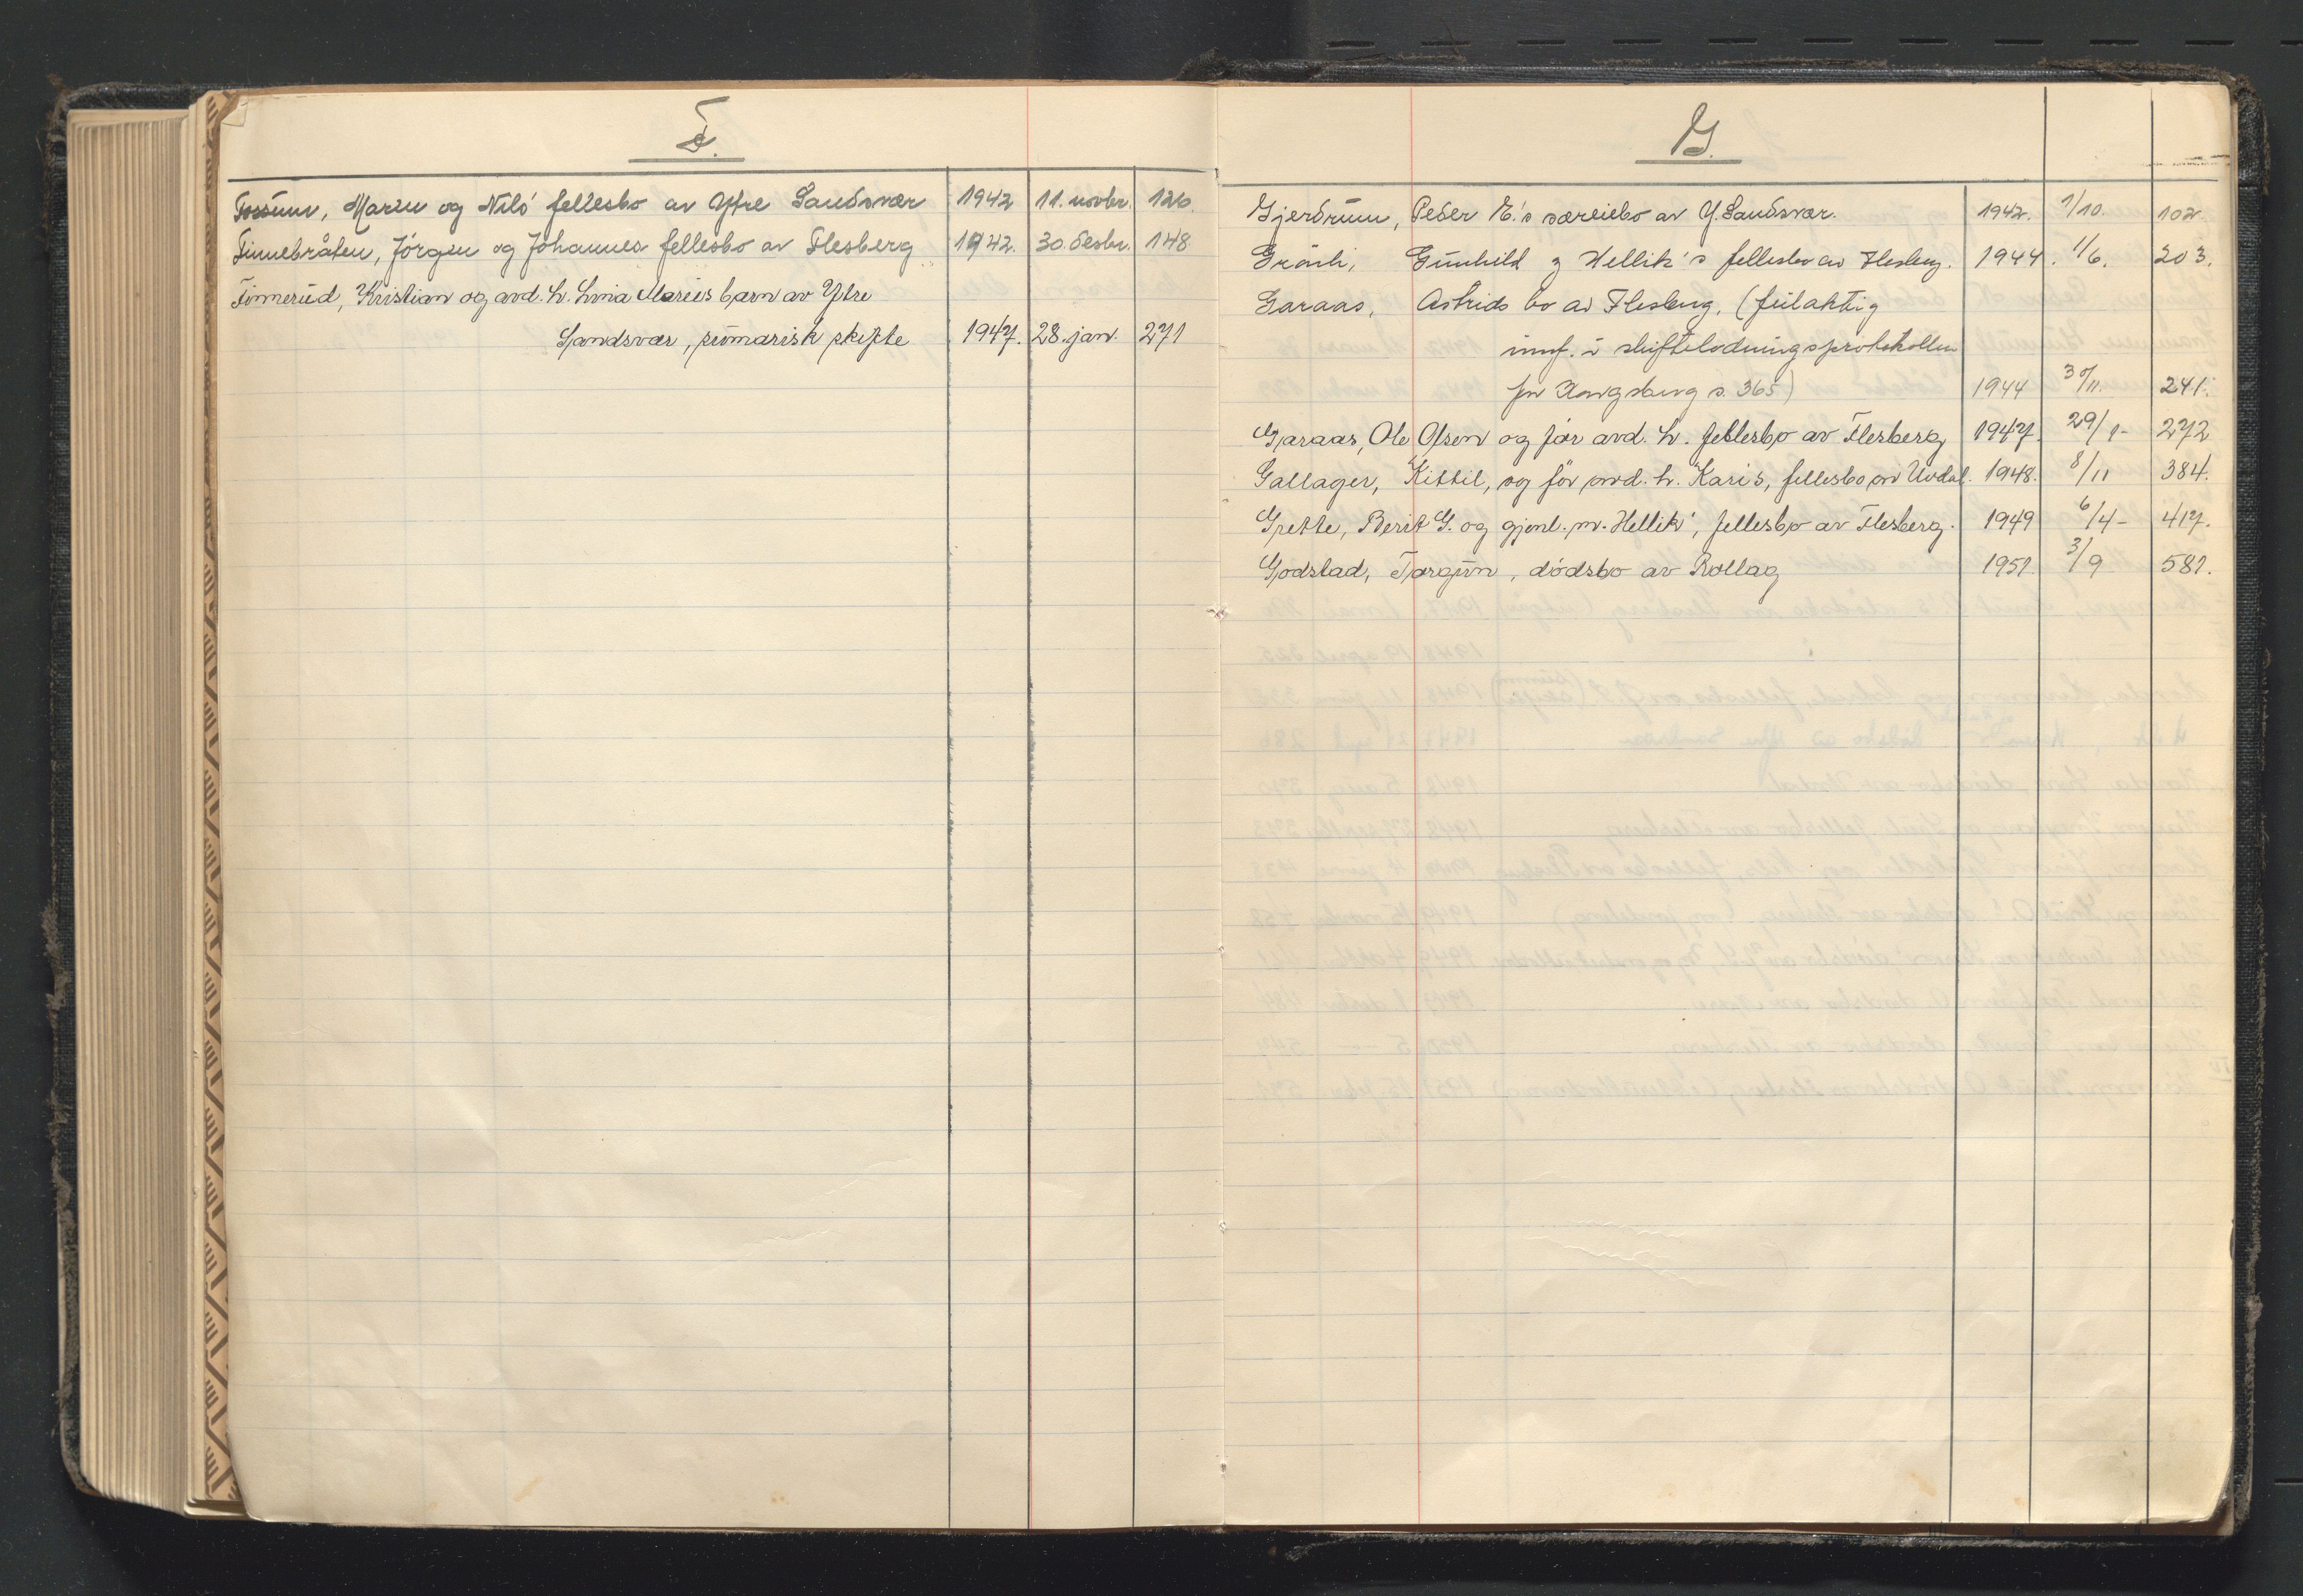 F.
Fossum, Maren og Nils' fellesbo av Ytre Sandsvær 1942 11. novbr. 126.
Finnebråten, Jörgen og Johannes fellesbo av Flesberg 1942. 30. desbr. 148
Finnerud, Kristian og avd. h. Linia Maries barn av Ytre
Sandsvær, sumarisk skifte 1947. 28. jan. 271
G.
Gjerdrum, Peder E.'s særeiebo av Y. Sandsvær. 1942. 1/10. 102.
Grönli, Gunhild og Hellik's fellesbo av Flesberg. 1944. 1/6. 203.
Garaas, Astrids bo av Flesberg, (feilaktig
innf. i skifteslodningsprotokollen
for Kongsberg s. 365) 1944 30/11. 241.
Garaas, Ole Olsen og før avd. h. fellesbo av Flesberg 1947. 29/1- 272
Gallager, Kittil, og før avd. h. Karis, fellesbo av Uvdal. 1948. 8/11 384.
Grette, Berit G. og gjenl. m. Hellik', fellesbo av Flesberg. 1949 6/4- 417.
Godstad, Torgun, dødsbo av Rollag 1951. 3/9 581.